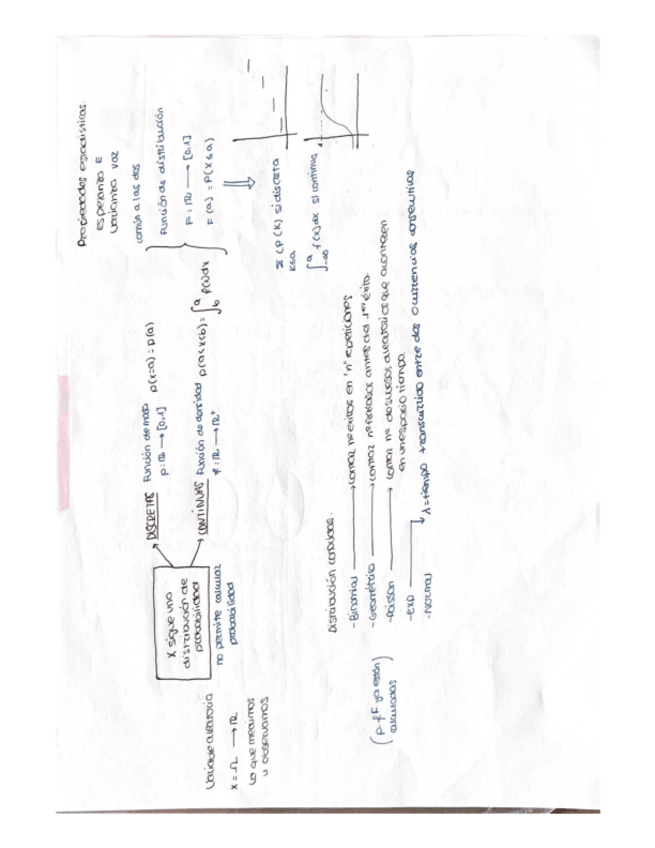 Variable aleatoria
X = Ω → ℝ
Lo que medimos
u observamos
X sigue una
distribución de
probabilidad
no permite calcular
probabilidad
DISCRETAS Función de masa
p: ℝ → [0,1] p(x=a) = p(a)
CONTINUAS Función de densidad p(a<x<b) = ∫ᵇᵃ f(x)dx
f: ℝ → ℝ⁺
Propiedades estadísticas.
esperanza E
varianza var
común a las dos
Función de distribución
F: ℝ → [0,1]
F(a) = P(X≤a)
Σ (P(K) si discreta
K≤a
∫ᵃ₋∞ f(x)dx si continua
Distribución conocidas.
(p·f·F ya están)
calculadas
-Binomial → contar nº éxitos en "n" repeticiones
-Geométrica → contar nº fracasos antes del 1er éxito.
-Poisson → contar nº de sucesos aleatorios que acontecen
en un espacio tiempo.
-Exp → λ=tiempo transcurrido entre dos ocurrencias consecutivas
-Normal